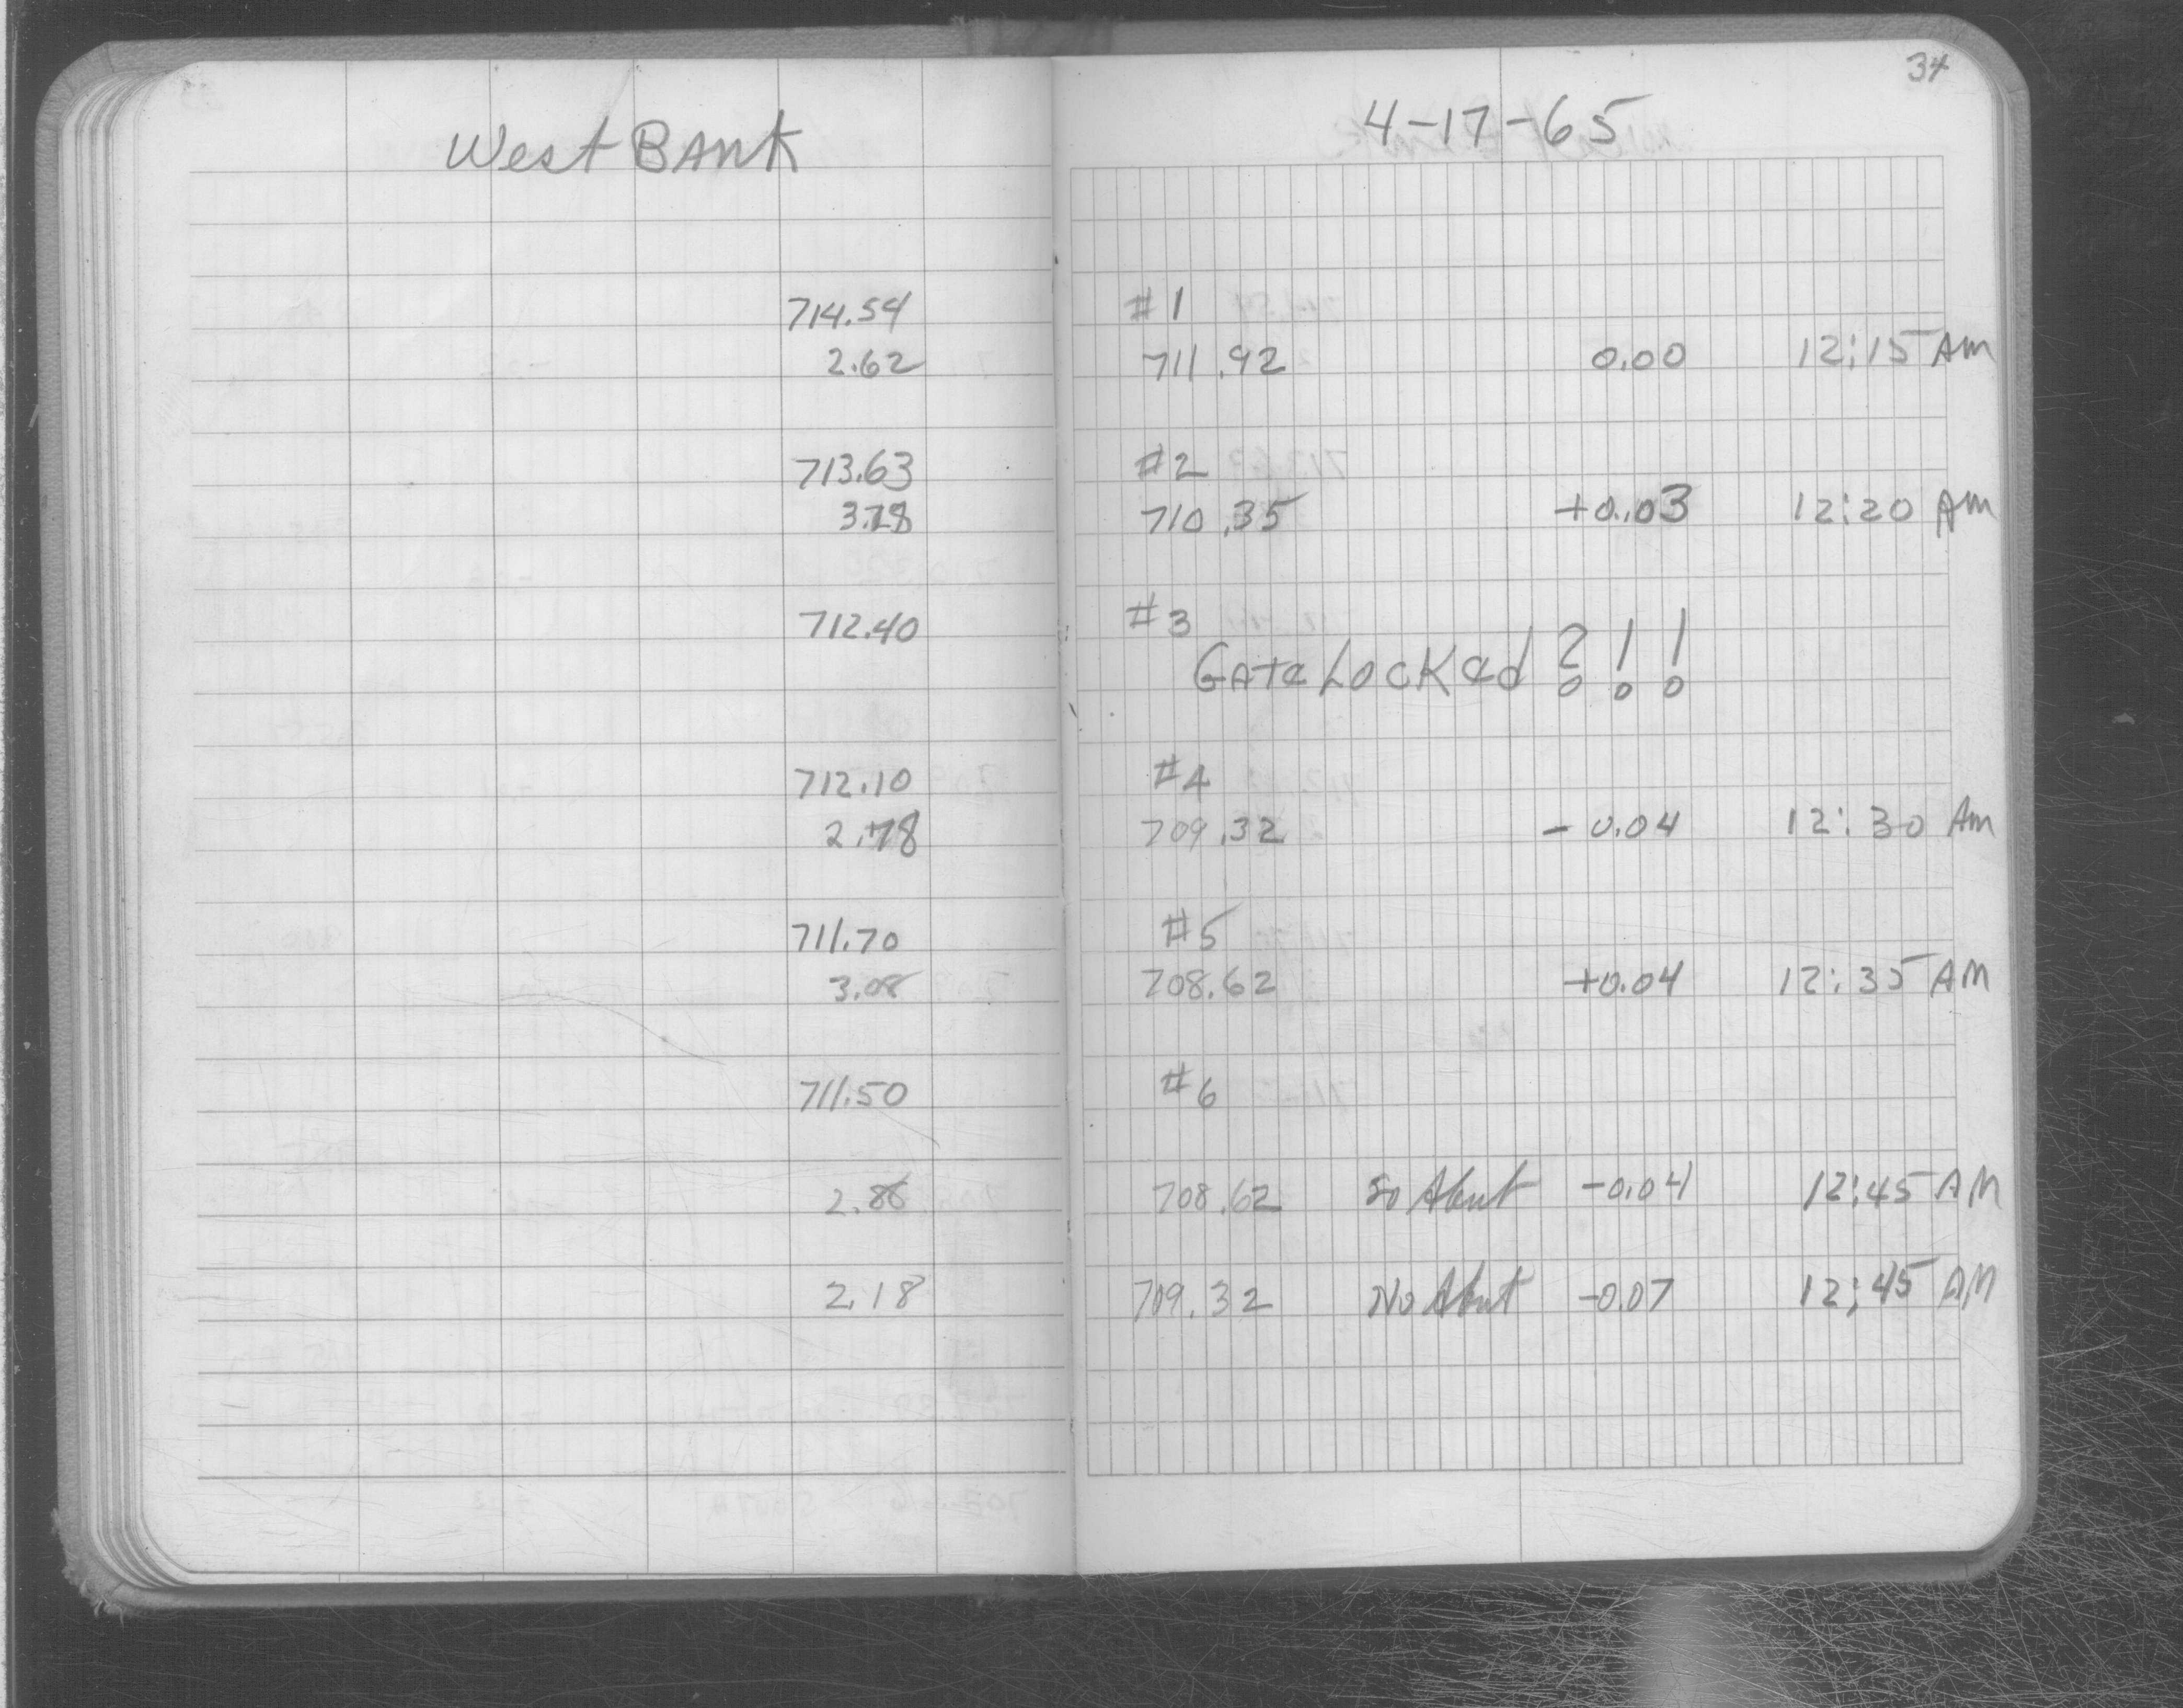 West BANK
714.54
2.62
713.63
3.28
712.40
712.10
2.78
711.70
3.08
711.50
2.88
2.18
34
4-17-65
#1
711.92 0.00 12:15 AM
#2
710.35 +0.03 12:20 AM
#3
GATE LOCKED ?!!
#4
709.32 -0.04 12:30 AM
#5
708.62 +0.04 12:35 AM
#6
708.62 So Abut -0.04 12:45 AM
709.32 No Abut -0.07 12:45 AM